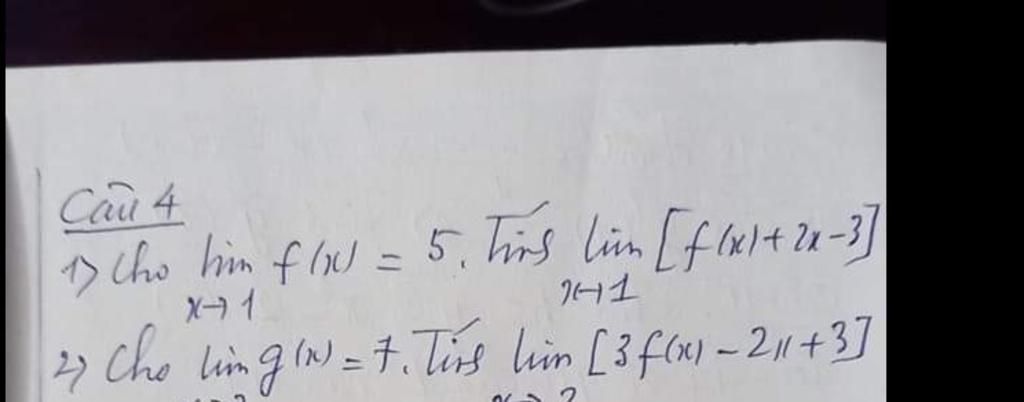 Câu 4
1) Cho lim f(x) = 5. Tính lim [f(x) + 2x - 3]
x→1 x→1
2) Cho lim g(x) = 7. Tính lim [3f(x) - 2x + 3]